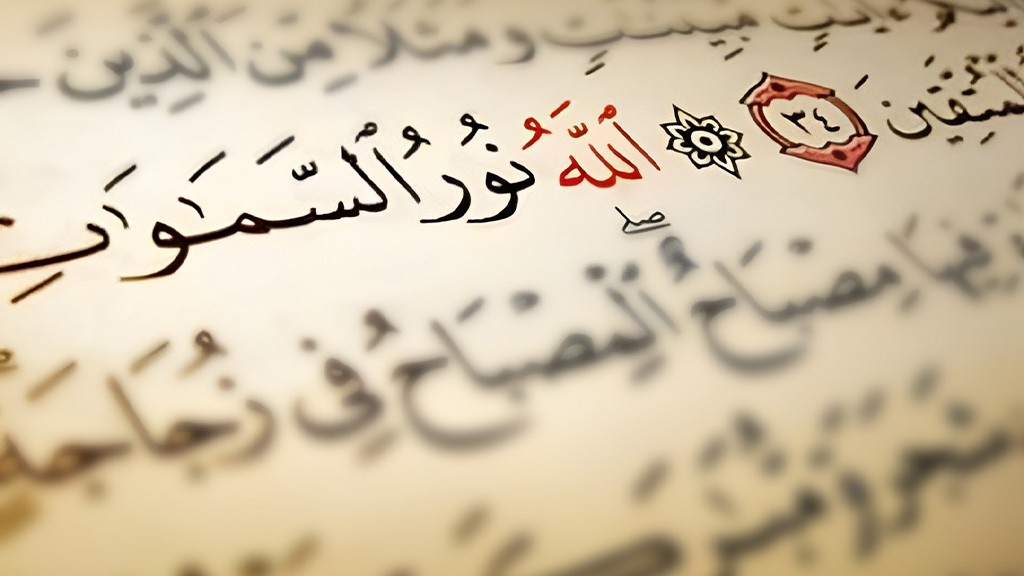 ءَايَٰتٍ مُّبَيِّنَٰتٍ وَمَثَلًا مِّنَ ٱلَّذِينَ
لِّلْمُتَّقِينَ ٣٤ ۞ ٱللَّهُ نُورُ ٱلسَّمَٰوَٰتِ
فِيهَا مِصْبَاحٌ ۖ ٱلْمِصْبَاحُ فِى زُجَاجَةٍ